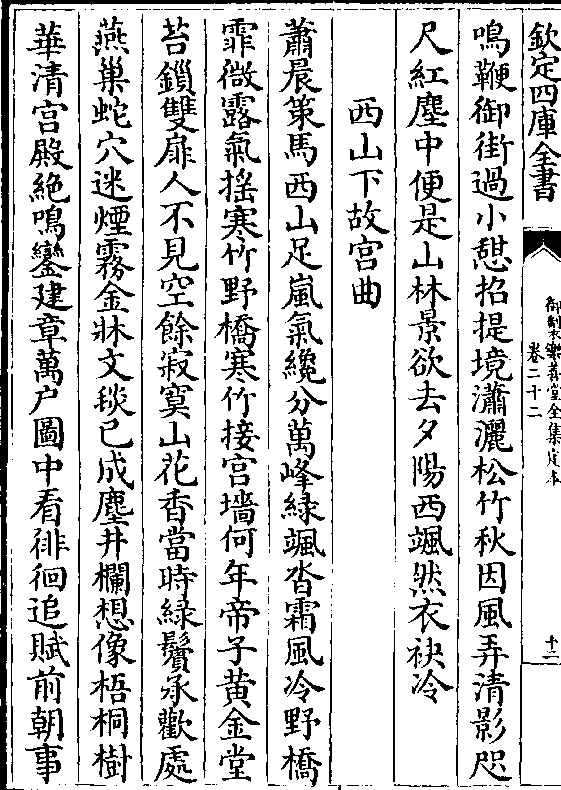 欽定四庫全書
御製樂善堂全集定本
卷二十二
十二
鳴鞭御街過小憇招提境瀟灑松竹秋因風弄清影咫
尺紅塵中便是山林景欲去夕陽西颯然衣袂冷
西山下故宫曲
蕭晨策馬西山足嵐氣纔分萬峰緑颯沓霜風冷野橋
霏微露氣揺寒竹野橋寒竹接宫墻何年帝子黄金堂
苔鎖雙扉人不見空餘寂寞山花香當時緑鬢承歡處
燕巢蛇穴迷煙霧金牀文棪已成塵井欄想像梧桐樹
華清宫殿絶鳴鑾建章萬户圖中看徘徊追賦前朝事